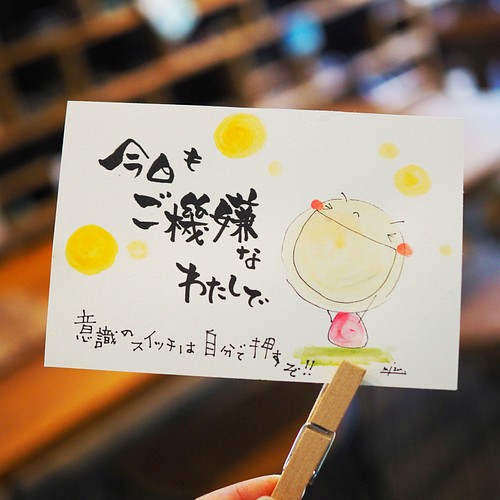 今日も
ご機嫌な
わたしで
意識のスイッチは自分で押すぞ!!